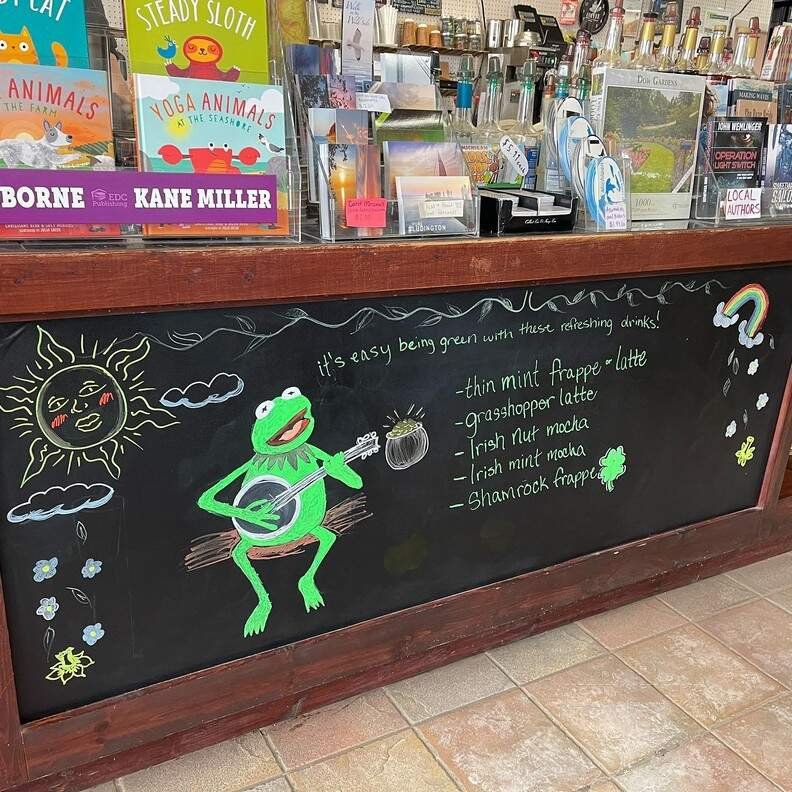 STEADY SLOTH
CAT
ANIMALS
THE FARM
YOGA ANIMALS
AT THE SEASHORE
BORNE EDC Publishing KANE MILLER
#LUDINGTON
Dow Gardens
1000
MAKING WAVES
JOHN WEMLINGER
OPERATION
LIGHT SWITCH
LOCAL
AUTHORS
it's easy being green with these refreshing drinks!
-thin mint frappe or latte
-grasshopper latte
-Irish nut mocha
-Irish mint mocha
-Shamrock frappe